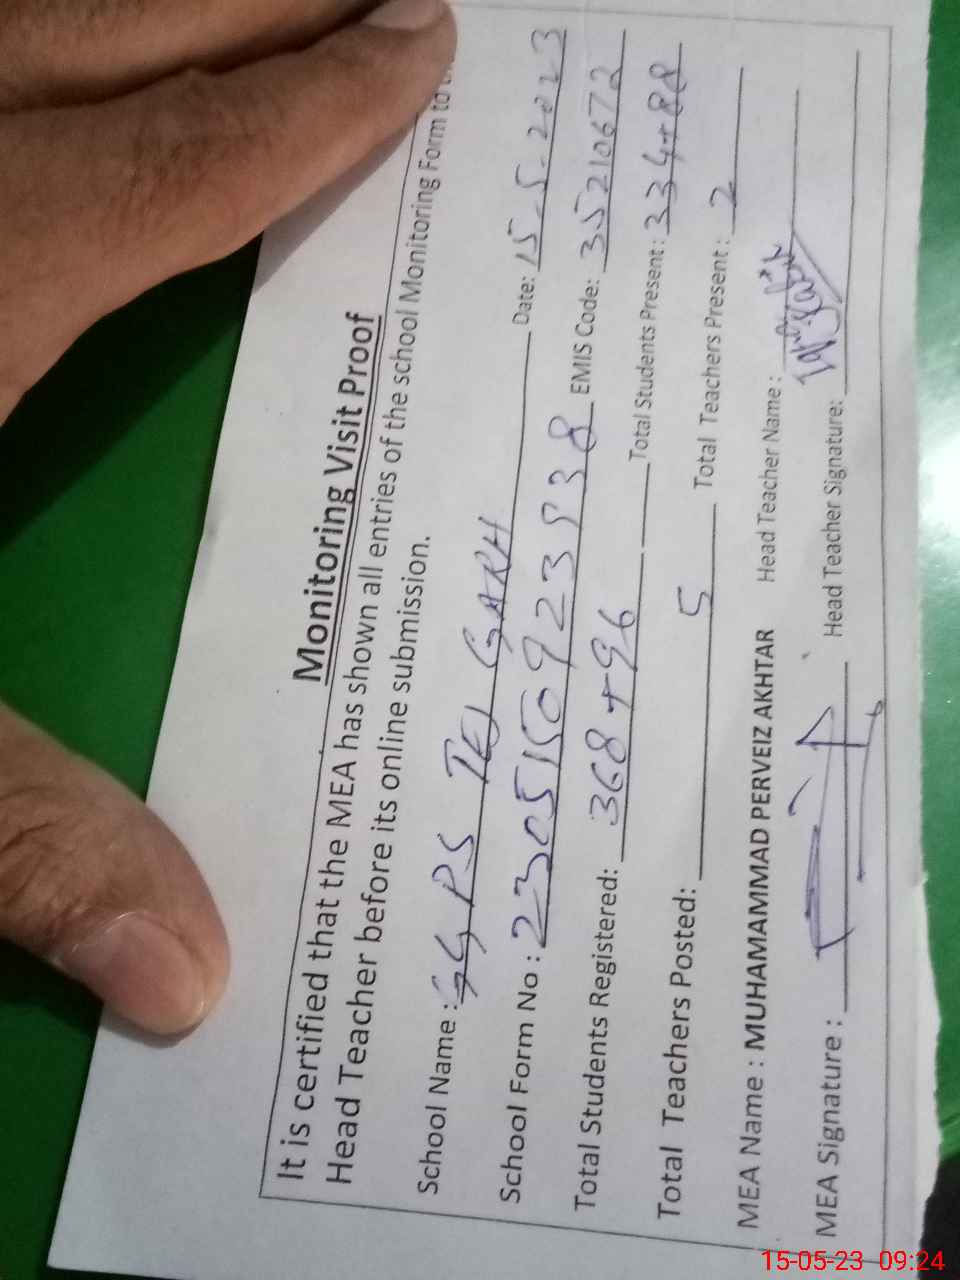 Monitoring Visit Proof
It is certified that the MEA has shown all entries of the school Monitoring Form to
Head Teacher before its online submission.
School Name : GGPS TEJ GARH Date: 15-5-2023
School Form No : EMIS Code: 35210672
Total Students Registered: 368+96 Total Students Present: 334+88
Total Teachers Posted: 5 Total Teachers Present: 2
MEA Name : MUHAMAMMAD PERVEIZ AKHTAR Head Teacher Name :
MEA Signature : Head Teacher Signature:
15-05-23 09:24